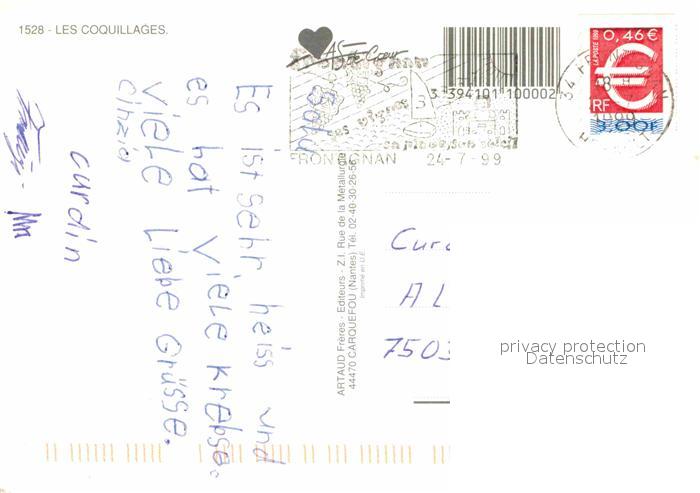 1528 - LES COQUILLAGES.
AS de Cœur
3 394101 100002
0,46€
LA POSTE 1999
RF
3,00F
ses vignes
sa plage, son soleil
FRONTIGNAN 24-7-99
Es ist sehr heiss und
es hat viele Krebse.
Viele Liebe Grüsse.
Cinzia
curdin
ARTAUD Frères - Editeurs - Z.I. Rue de la Métallurgie
44470 CARQUEFOU (Nantes) Tél. 02-40-30-26-56
Imprimé en U.E.
Cur
AL
7503
privacy protection
Datenschutz